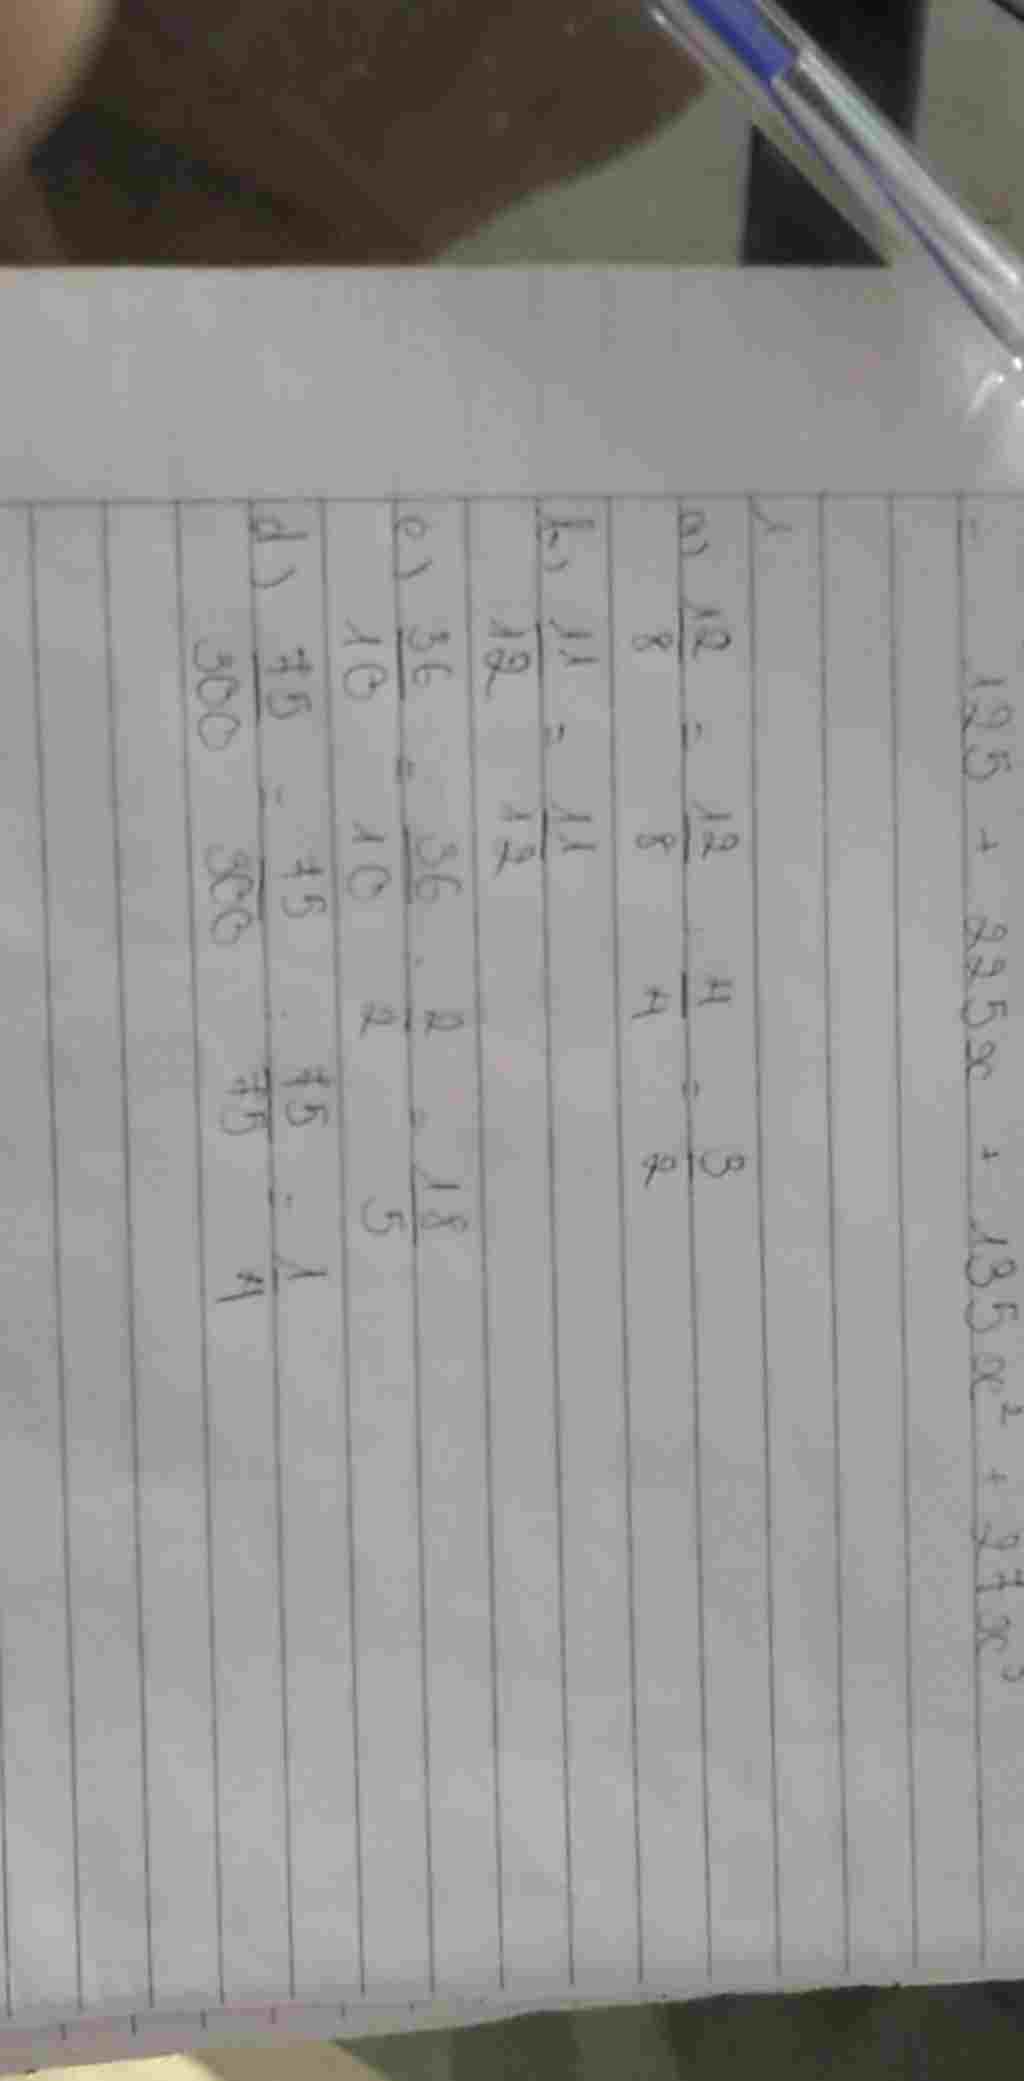 = 125 + 225x + 135x² + 27x³
1
a) 12/8 = 12/8 : 4/4 = 3/2
b) 11/12 = 11/12
c) 36/10 = 36/10 : 2/2 = 18/5
d) 75/300 = 75/300 : 75/75 = 1/4